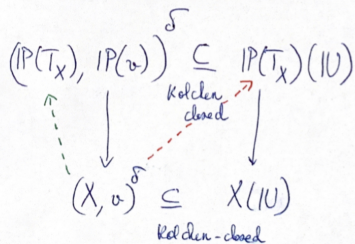 (ℙ(T_X), ℙ(v))^δ ⊆ ℙ(T_X)(𝕌)
Kolchin
closed
(X, v)^δ ⊆ X(𝕌)
Kolchin-closed